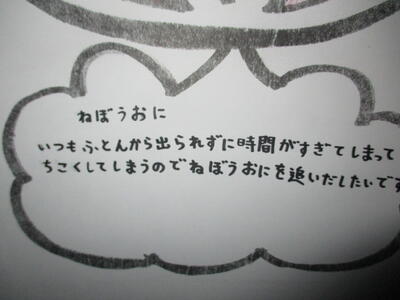 ねぼうおに
いつもふとんから出られずに時間がすぎてしまって
ちこくしてしまうのでねぼうおにを追いだしたいです